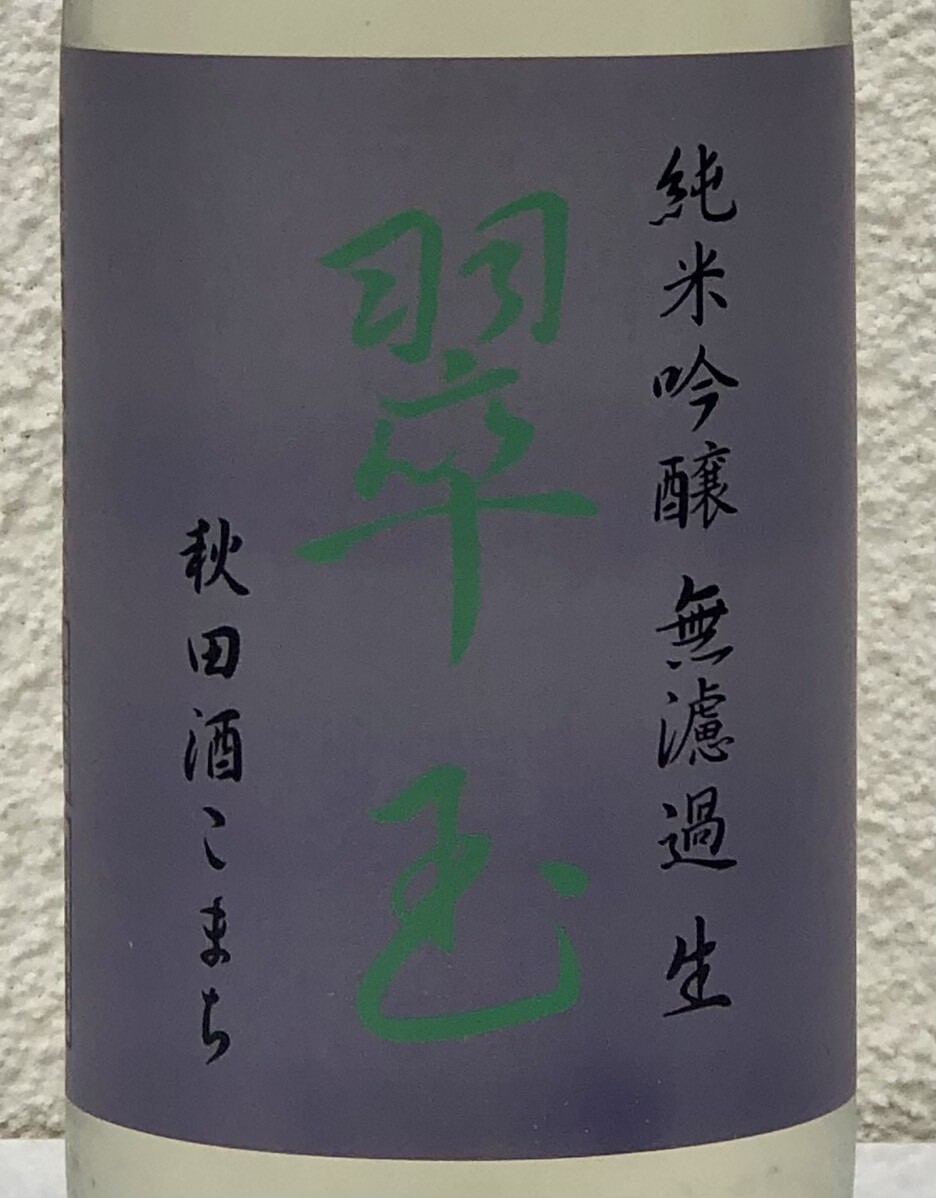 純米吟醸 無濾過 生
翠玉
秋田酒こまち